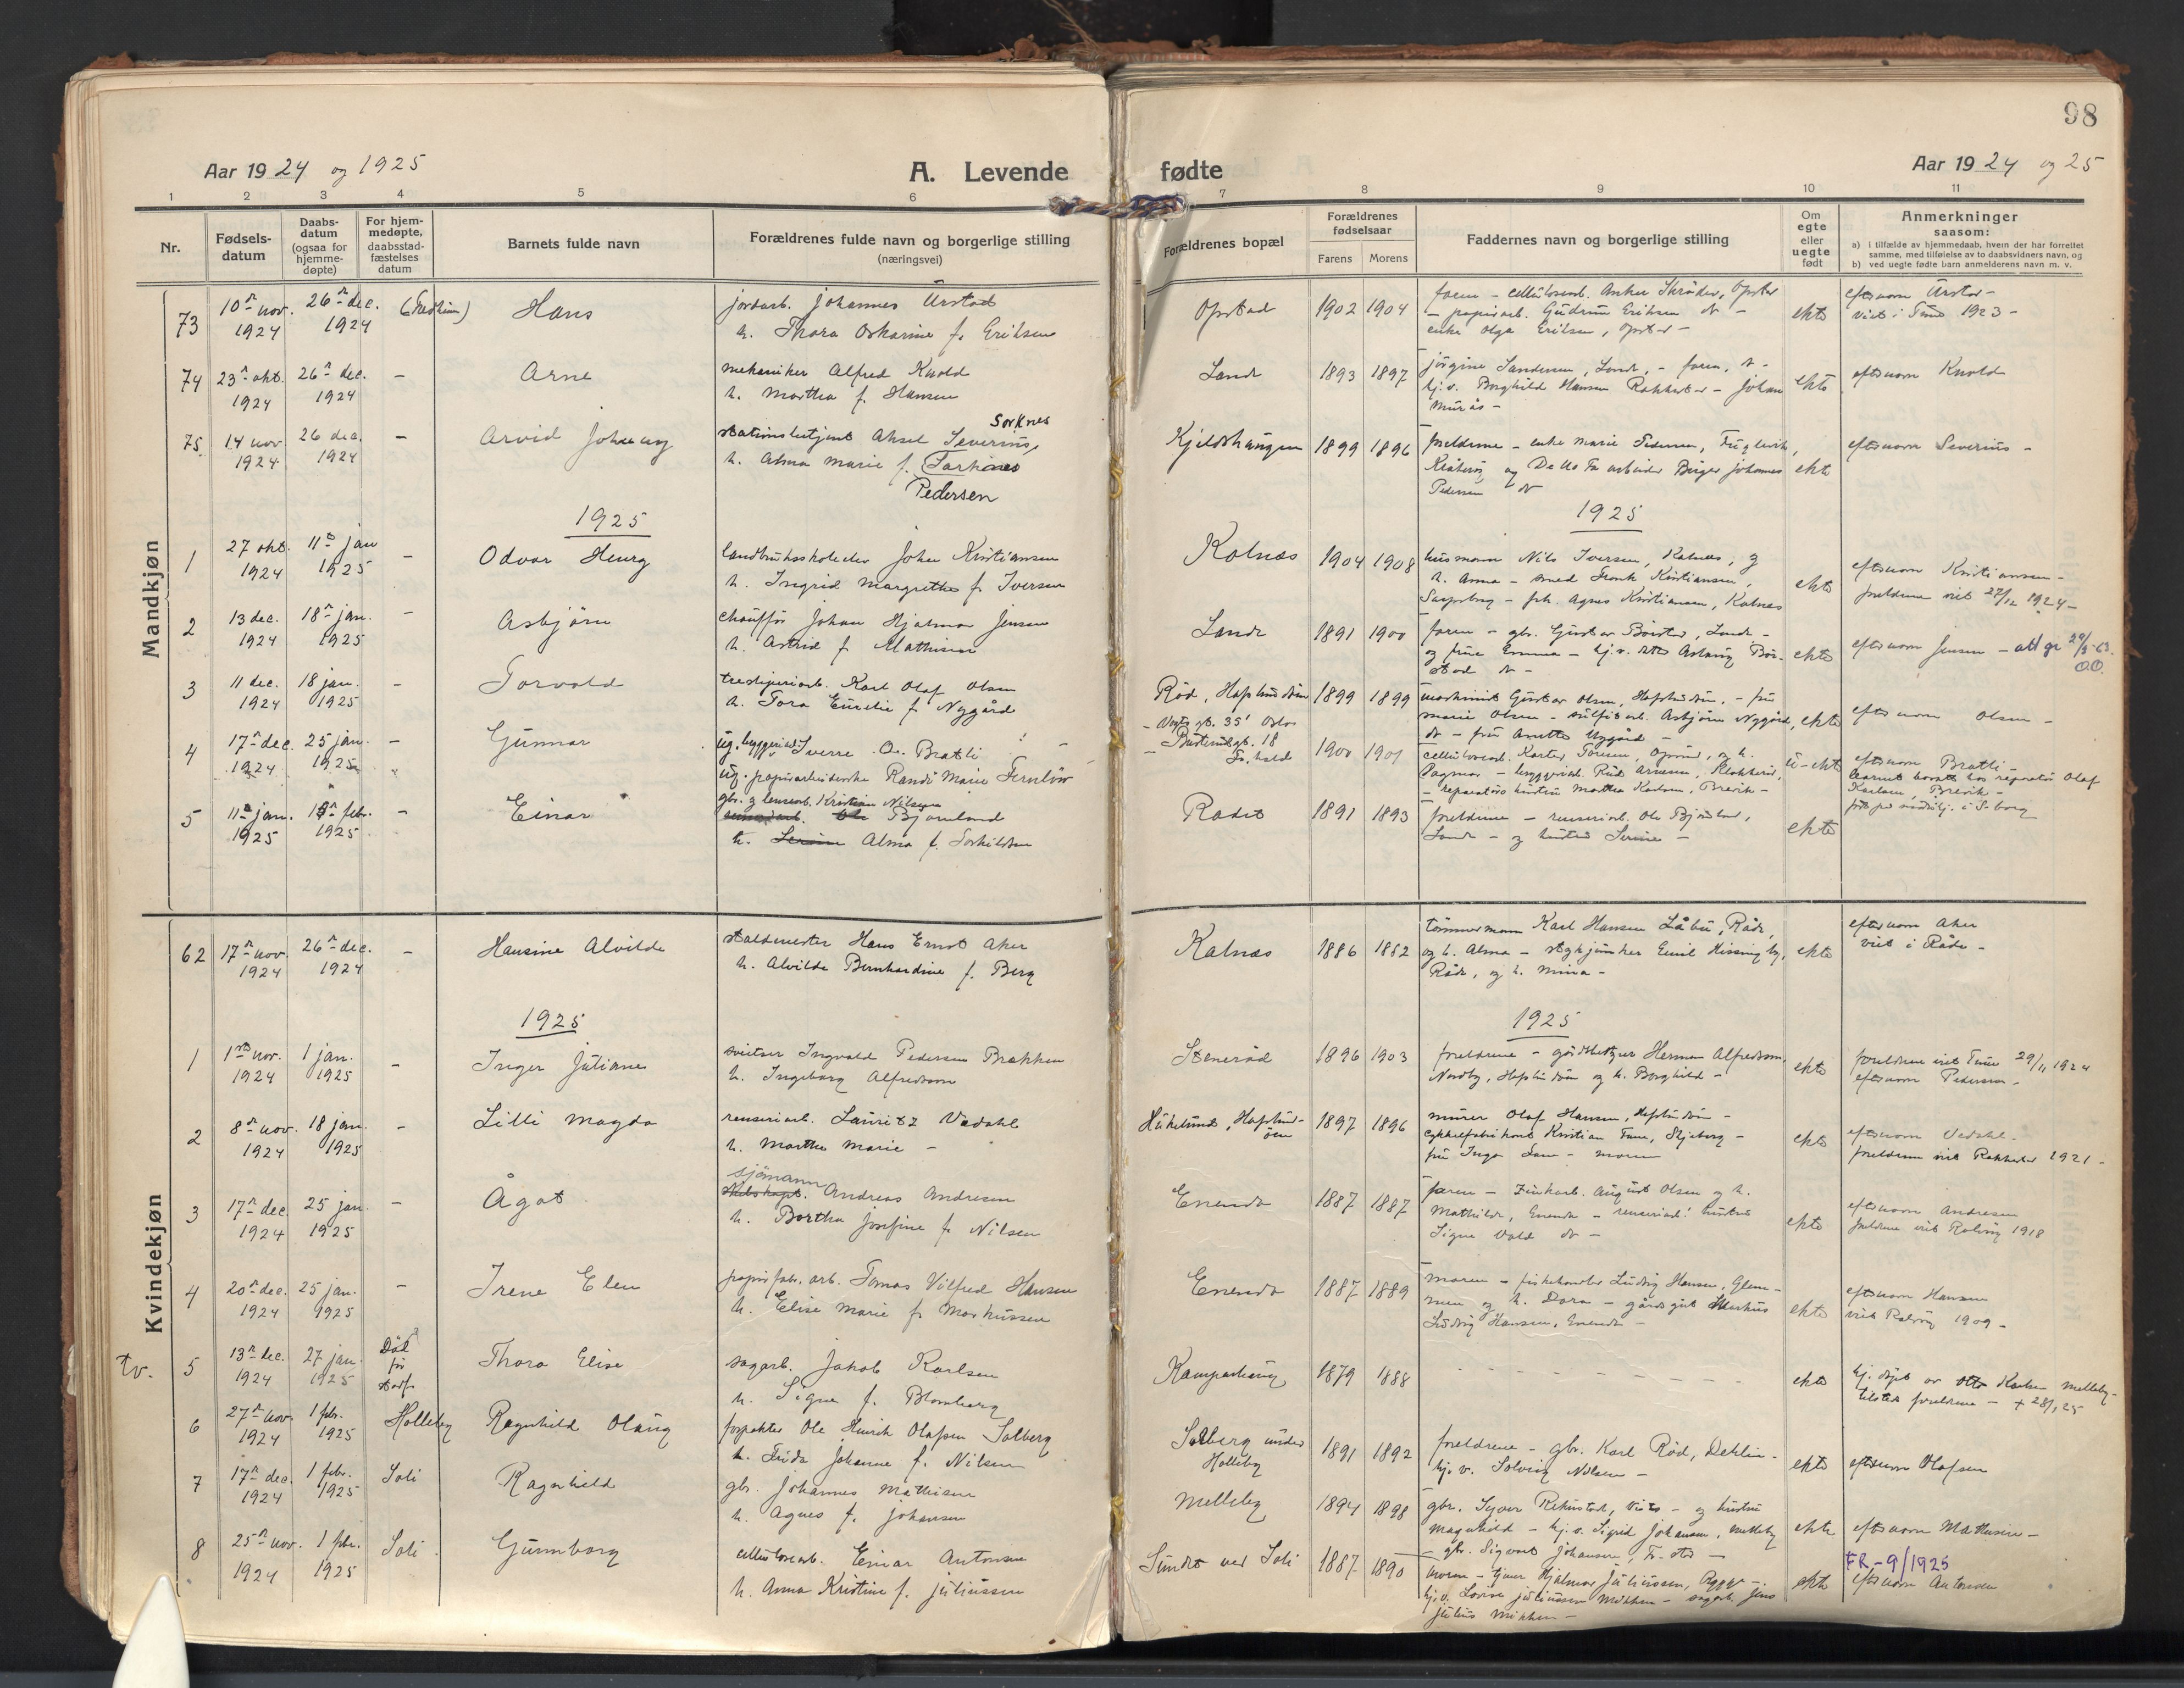 98
Aar 1924 og 1925
A. Levende fødte
Aar 1924 og 25
1 2 3 4 5 6 7 8 9 10 11
Nr.
Fødsels-
datum
Daabs-
datum
(ogsaa for
hjemme-
døpte)
For hjem-
medøpte,
daabsstad-
fæstelses
datum
Barnets fulde navn
Forældrenes fulde navn og borgerlige stilling
(næringsvei)
Forældrenes bopæl
Forældrenes
fødselsaar
Farens Morens
Faddernes navn og borgerlige stilling
Om
egte
eller
uegte
født
Anmerkninger
saasom:
a) i tilfælde av hjemmedaab, hvem der har forrettet
samme, med tilføielse av to daabsvidners navn, og
b) ved uegte fødte barn anmelderens navn m. v.
Mandkjøn
73 10 nov. 1924 26 dec. 1924 Hans
jordarb. Johannes Årstad
h. Thora Oskarine f. Eriksen
Opstad 1902 1904
enke Olga Eriksen, Opstad -
ekte
efternavn Årstad -
viet i Tune 1923 -
74 23 okt. 1924 26 dec. 1924 - Arne
mekaniker Alfred Knold
h. Martha f. Hansen
Lande 1893 1897
ekte
efternavn Knold
75 14 nov. 1924 26 dec. 1924 - Arvid Johnny
Sorknes
stationsbetjent Aksel Severins,
h. Alma Marie f. Torknes
Pedersen
Kjeldshaugen 1899 1896
Pedersen
ekte
efternavn Severins -
1925
1925
1 27 okt. 1924 11 jan 1925 - Odvar Henry
John Kristiansen
h. Ingrid Margrethe f. Iversen
Kalnæs 1904 1908
husmann Nils Iversen, Kalnæs, og
h. Anna - smed Frank Kristiansen,
Sarpsborg - frk. Agnes Kristiansen, Kalnæs
ekte
efternavn Kristiansen -
foreldrene viet 27/12 1924 -
2 13 dec. 1924 18 jan. 1925 - Asbjørn
chauffør Johan Hjalmar Jensen
h. Astrid f. Mathisen
Lande 1891 1900
ekte
efternavn Jensen - att gr 29/5-63.
3 11 dec. 1924 18 jan. 1925 - Torvald
tresliperiarb. Karl Olaf Olsen
h. Tora Emelie f. Nygård
Rød, Hafslundsøen 1899 1899
maskinist Gustav Olsen, Hafslundsøen, - fru
Marie Olsen - sulfitarb. Asbjørn Nygård,
do - fru Anette Nygård -
ekte
efternavn Olsen -
4 17 dec. 1924 25 jan. 1925 - Gunnar
ug. byggeriarb. Sverre O. Bratli
ug. papirarbeiderske Randi Marie Fernløv
- Vogts gt. 35 Oslo
1900 1901
- reparatørs hustru Martha Karlsen, Brevik -
u-ekte
efternavn Bratli -
barnet bortsatt hos reparatør Olaf
Karlsen, Brevik -
5 11 jan. 1925 15 febr. 1925 - Einar
gbr. og lensearb. Kristian Nilsen
Bjørnland
h. Serine Alma f. Torkildsen
Radet 1891 1893
foreldrene - renseriarb. Ole Bjørnland,
Lande - og hustru Serine -
ekte
Kvindekjøn
62 17 nov. 1924 26 dec. 1924 - Hansine Alvilde
staldmester Hans Ernst Aker
h. Alvilde Bernhardine f. Berg
Kalnæs 1886 1882
tømmermann Karl Hansen Låbu, Råde,
Råde, og h. Mina -
ekte
efternavn Aker
viet i Råde -
1925
1925
1 1 nov. 1924 1 jan. 1925 - Inger Juliane
sveitser Ingvald Pedersen Brekken
h. Ingeborg Alfredsen
Stenerød 1896 1903
foreldrene - gårdbestyrer Herman Alfredsen,
Nordby, Hafslundsøen og h. Borghild -
ekte
foreldrene viet Tune 29/11 1924
efternavn Pedersen -
2 8 nov. 1924 18 jan. 1925 - Lilli Magda
renseriarb. Lauritz Vedahl
h. Martha Marie -
1897 1896
murer Olaf Hansen, Hafslundsøen -
cykkelfabrikant Kristian Tune, Skjeberg -
ekte
efternavn Vedahl -
foreldrene viet Rakkestad 1921 -
3 17 dec. 1924 25 jan. 1925 - Ågot
sjømann
Andreas Andresen
h. Bertha Josefine f. Nilsen
Enenda 1887 1887
faren - zinkarb. August Olsen og h.
Mathilde, Enenda - renseriarb. hustru
Signe Vold do -
ekte
efternavn Andresen
foreldrene viet Rolvsøy 1918
4 20 dec. 1924 25 jan. 1925 - Irene Elen
papirfabr. arb. Tomas Vilfred Hansen
h. Elise Marie f. Markussen
Enenda 1887 1889
moren - fiskehandler Ludvig Hansen, Glem-
men og h. Dora - gårdsgut Markus
Ludvig Hansen, Enenda -
ekte
efternavn Hansen
viet Rolvsøy 1909 -
tv. 5 13 dec. 1924 27 jan. 1925 Død før stadf. Thora Elise
sagarb. Jakob Karlsen
h. Signe f. Blomberg
Kamperhaug 1879 1888
- - - - - - -
ekte
hj. døpt av Otto Karlsen Melleby -
tilstede foreldrene - + 28/1 25
6 27 nov. 1924 1 febr. 1925 Holleby Ragnhild Olaug
forpakter Ole Henrik Olafsen Solberg
h. Frida Johanne f. Nilsen
Solberg under
Holleby 1891 1892
foreldrene - gbr. Karl Rød, Dehlin -
hj. v. Solveig Nilsen -
ekte
efternavn Olafsen
7 17 dec. 1924 1 febr. 1925 Soli Ragnhild
gbr. Johannes Mathisen
h. Agnes f. Johansen
Melleby 1894 1898
Magnhild - hj. v. Sigrid Johansen, Melleby
- gbr. Sigvart Johansen, Fr.stad -
ekte
efternavn Mathisen -
8 25 nov. 1924 1 febr. 1925 Soli Gunnborg
cellulosearb. Einar Antonsen
h. Anna Kristine f. Juliussen
Sundet ved Soli 1887 1890
moren - Hjalmar Juliussen, Rygge -
hj. v. Lovise Juliussen Mikken - sagarb. Jens
Julius Mikken -
ekte
FR-9/1925
efternavn Antonsen